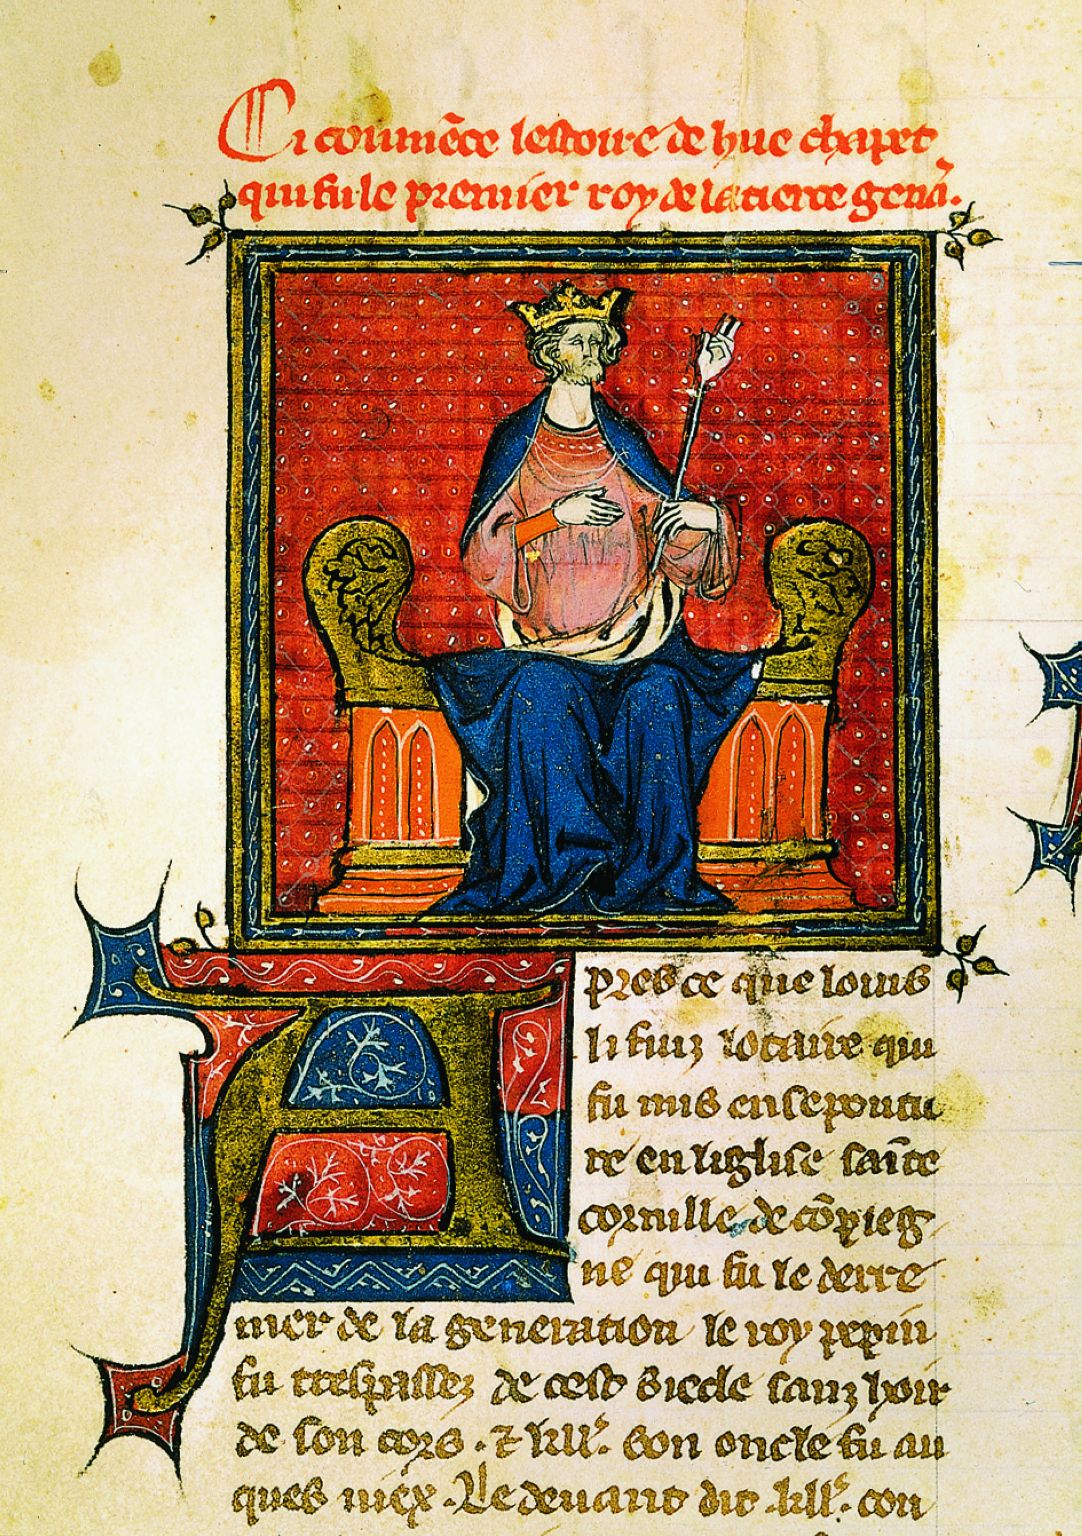 Ci coumẽce lestoire de hue chapet
qui fu le premier roy de la tierce genã.
Apres ce que louis
li fuiz lotaire qui
fu mis en sepoutu
re en liglise saĩte
cornille de cõpieg
ne qui fu le derre
nier de la generation le roy pepin
fu trespassez de cest siecle sanz hoir
de son cors . ⁊ kll'. son oncle fu au
ques niex . Le devant dit .kll'. con